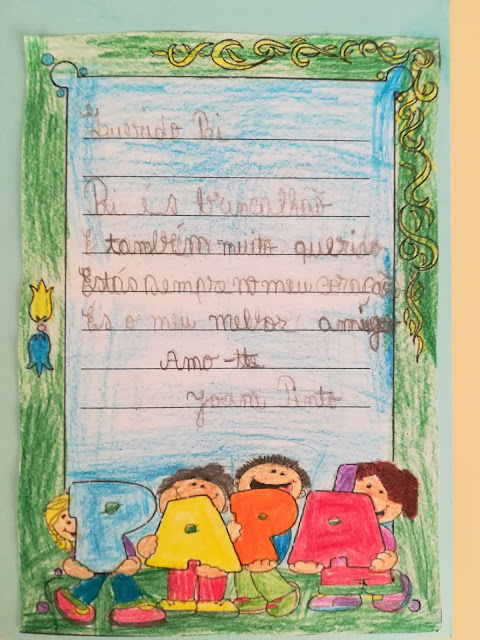 Querido Pai
Pai és brincalhão
E também muito querido
Estás sempre no meu coração
És o meu melhor amigo
Amo-te
Joana Pinto
PAPÁ